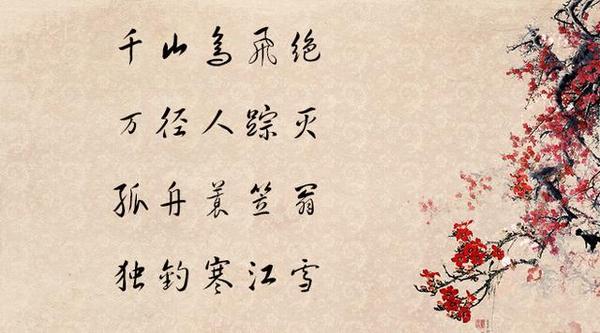 千山鸟飛绝
万径人踪灭
孤舟蓑笠翁
独钓寒江雪